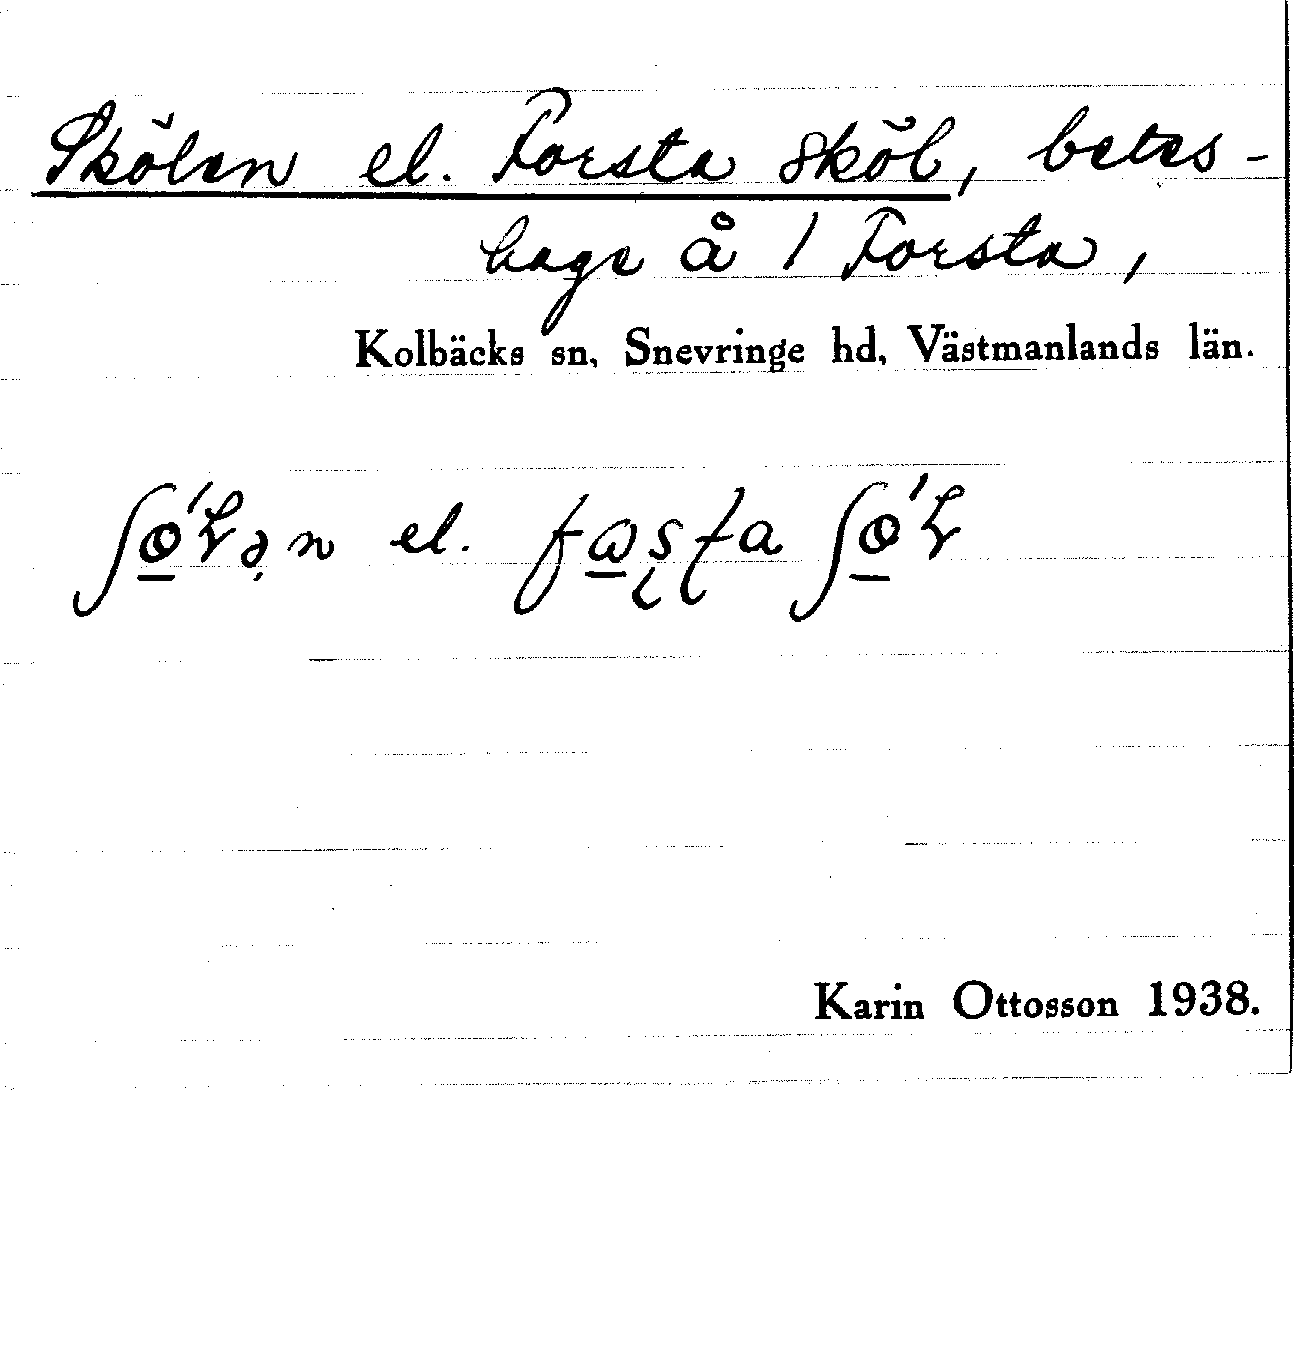 Skölen el. Forsta sköl, betes-
hage å 1 Forsta,
Kolbäcks sn, Snevringe hd, Västmanlands län.
el.
Karin Ottosson 1938.